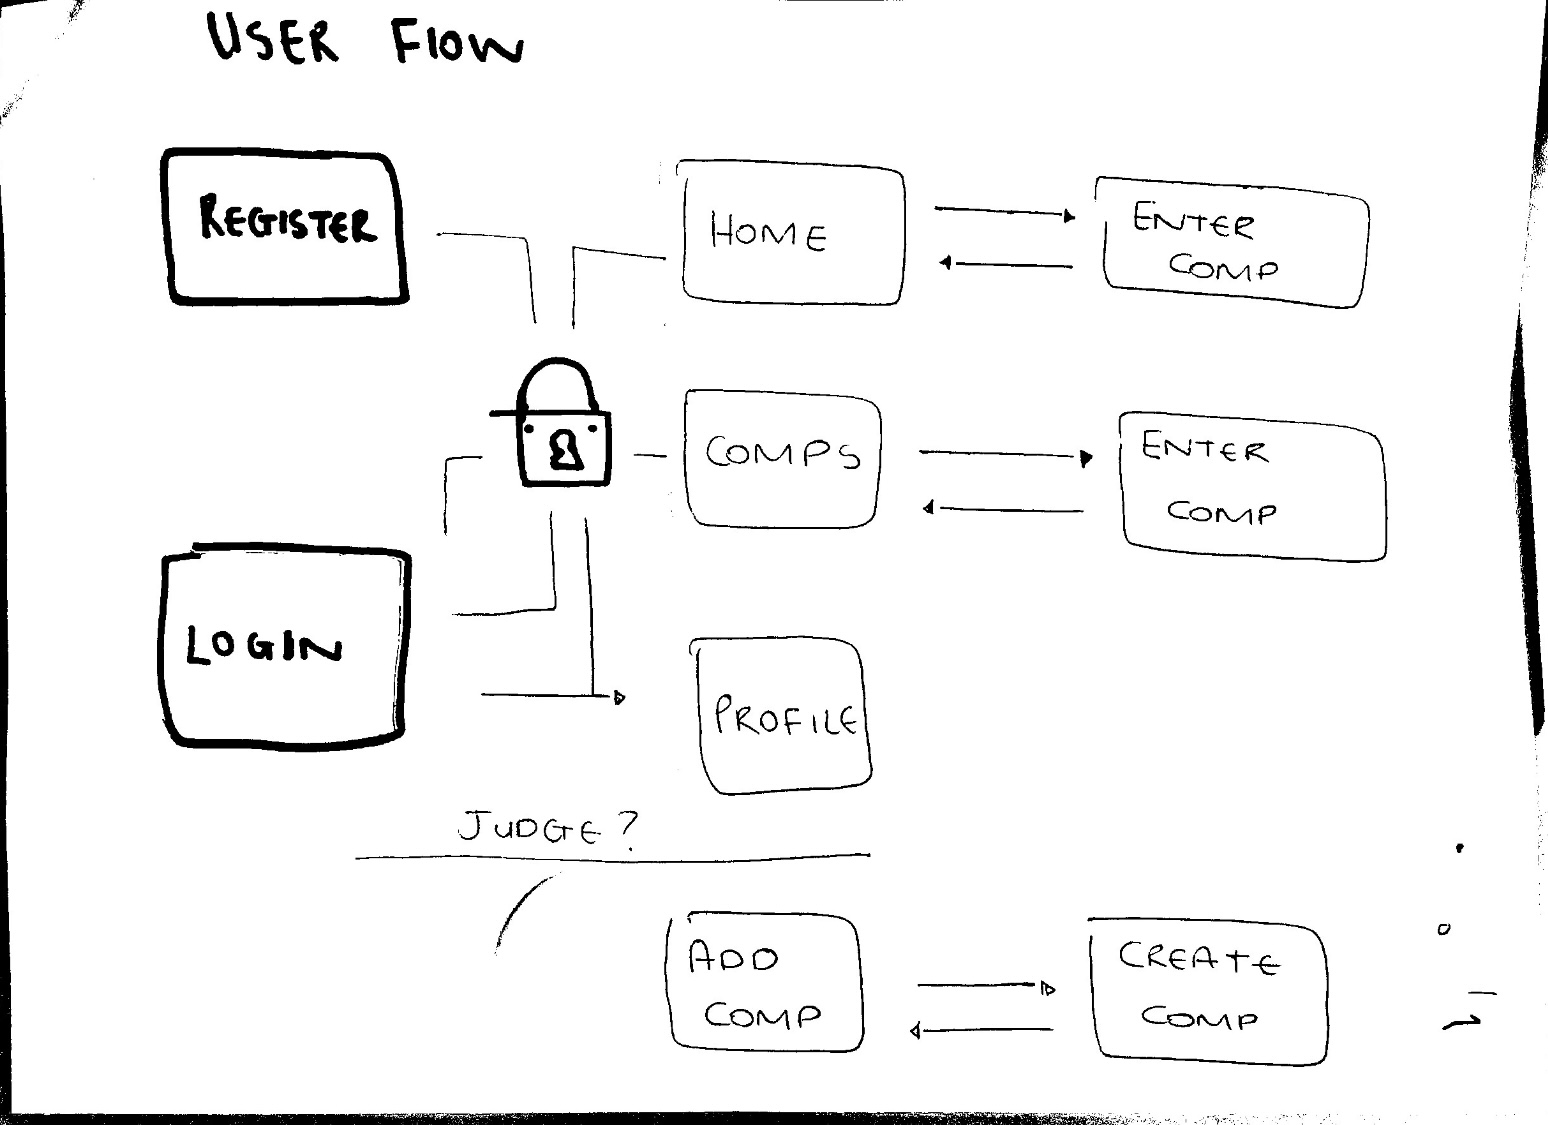 USER FlOW
REGISTER
HOME
ENTER
COMP
COMPS
ENTER
COMP
LOGIN
PROFILE
JUDGE?
ADD
COMP
CREATE
COMP